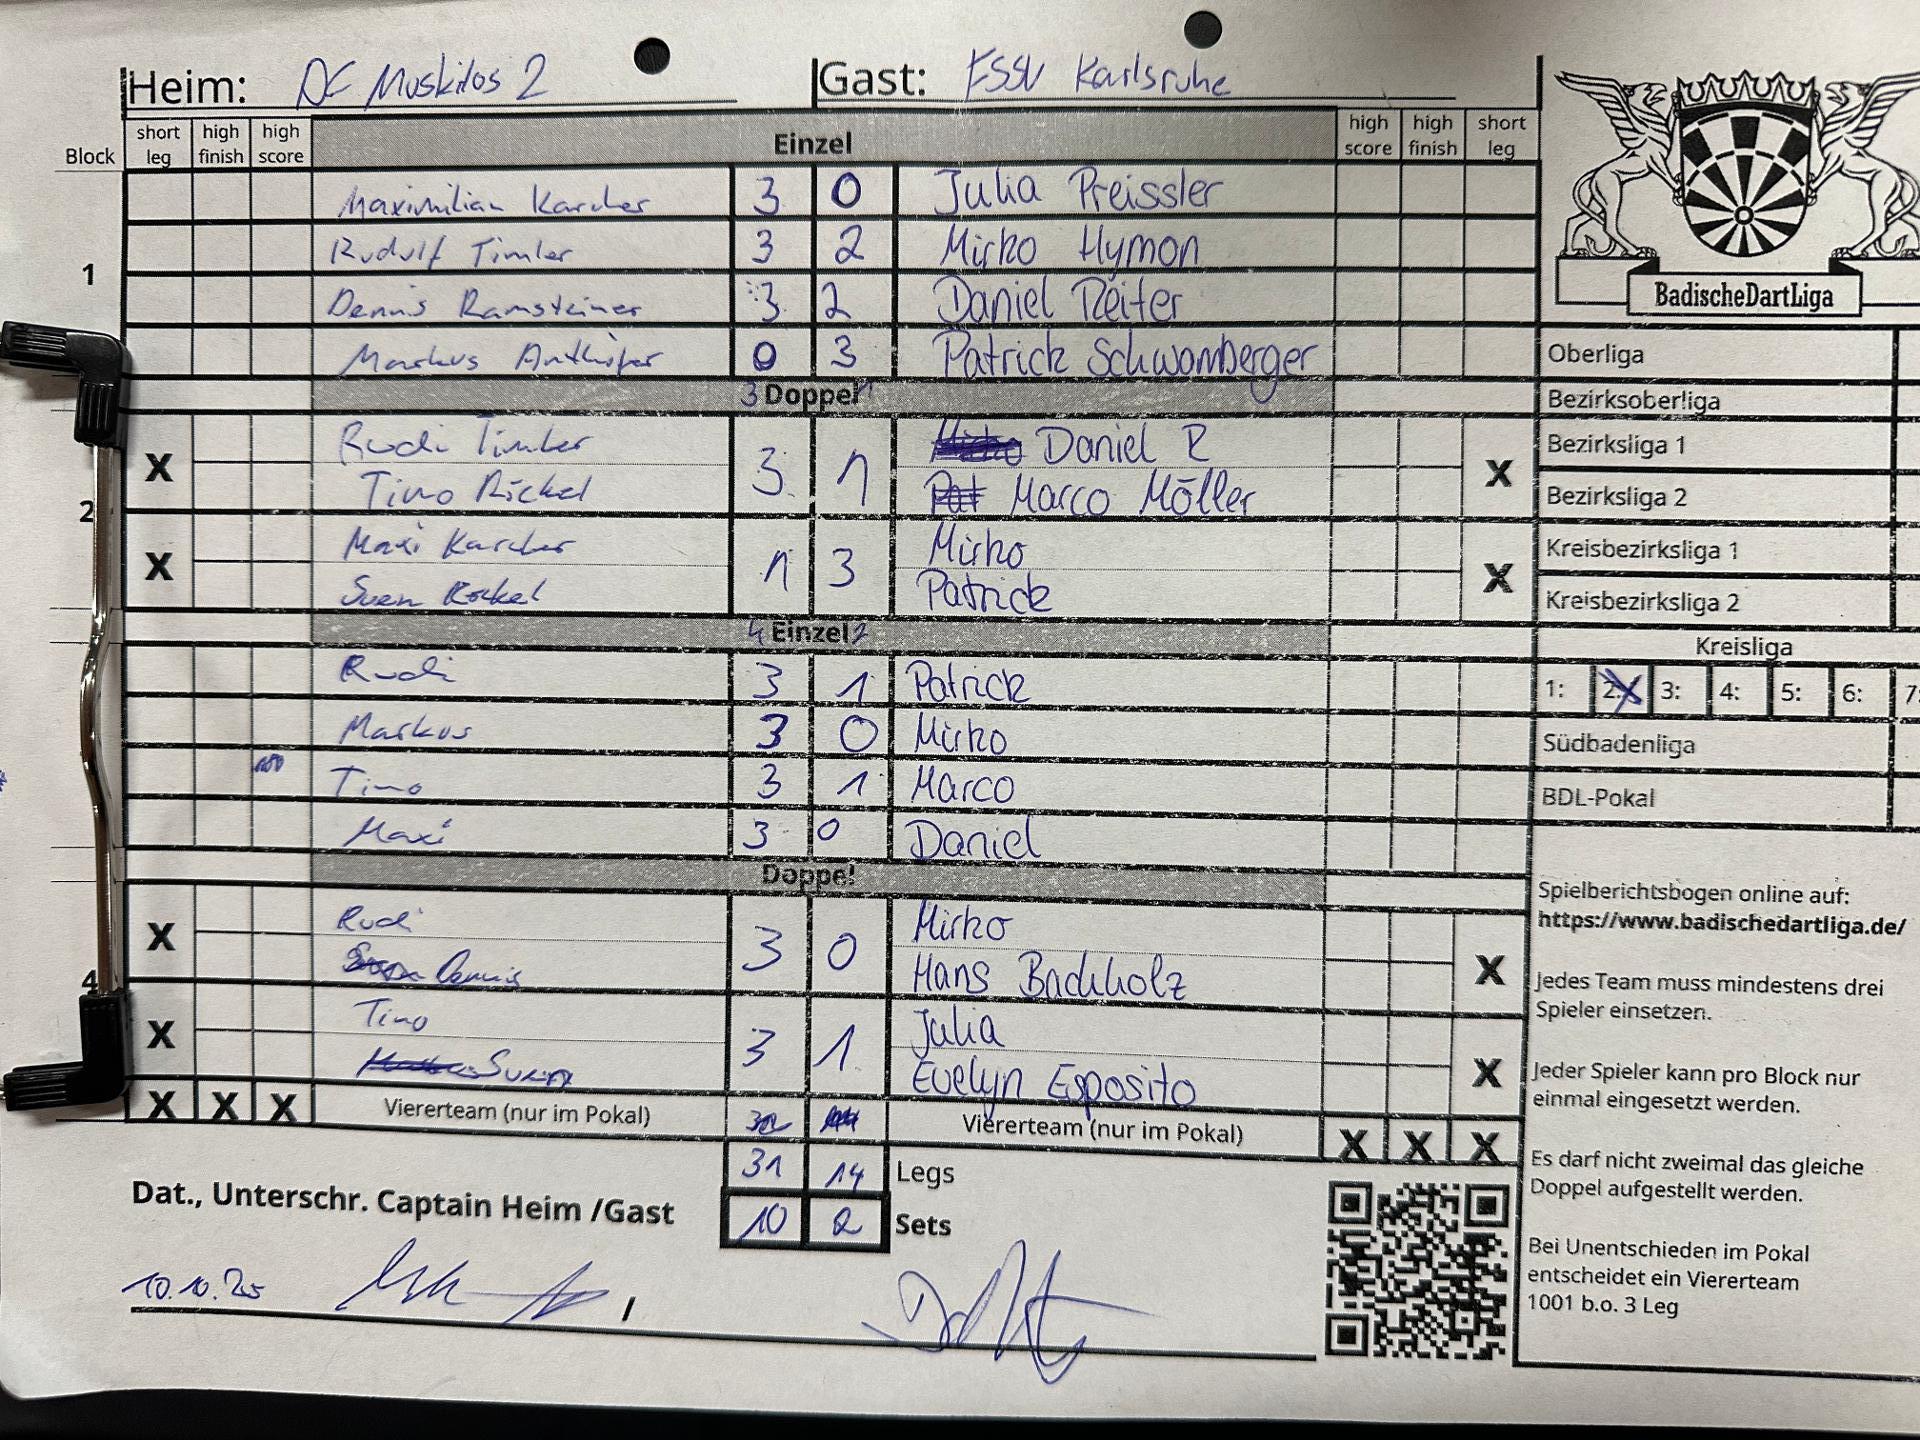 Heim: DC Muskitos 2 Gast: ESSV Karlsruhe
Block short leg high finish high score Einzel high score high finish short leg
1
Maximilian Karcher 3 0 Julia Preissler
Rudolf Timler 3 2 Mirko Hymon
Dennis Ramsteiner 3 2 Daniel Reiter
Markus 0 3 Patrick Schwamberger
3 Doppel 1
2
X Rudi Timler 3 1 Daniel R X
Tino Rickel Marco Möller
X Maxi Karcher 1 3 Mirko X
Sven Rickel Patrick
4 Einzel 2
Rudi 3 1 Patrick
Markus 3 0 Mirko
180 Tino 3 1 Marco
Maxi 3 0 Daniel
Doppel
4
X Rudi 3 0 Mirko X
Dennis Hans Bachholz
X Tino 3 1 Julia X
Sven Evelyn Esposito
X X X Viererteam (nur im Pokal) Viererteam (nur im Pokal) X X X
31 14 Legs
10 2 Sets
Dat., Unterschr. Captain Heim /Gast
10.10.25 /
BadischeDartLiga
Oberliga
Bezirksoberliga
Bezirksliga 1
Bezirksliga 2
Kreisbezirksliga 1
Kreisbezirksliga 2
Kreisliga
1: 2: X 3: 4: 5: 6: 7:
Südbadenliga
BDL-Pokal
Spielberichtsbogen online auf:
https://www.badischedartliga.de/
Jedes Team muss mindestens drei
Spieler einsetzen.
Jeder Spieler kann pro Block nur
einmal eingesetzt werden.
Es darf nicht zweimal das gleiche
Doppel aufgestellt werden.
Bei Unentschieden im Pokal
entscheidet ein Viererteam
1001 b.o. 3 Leg